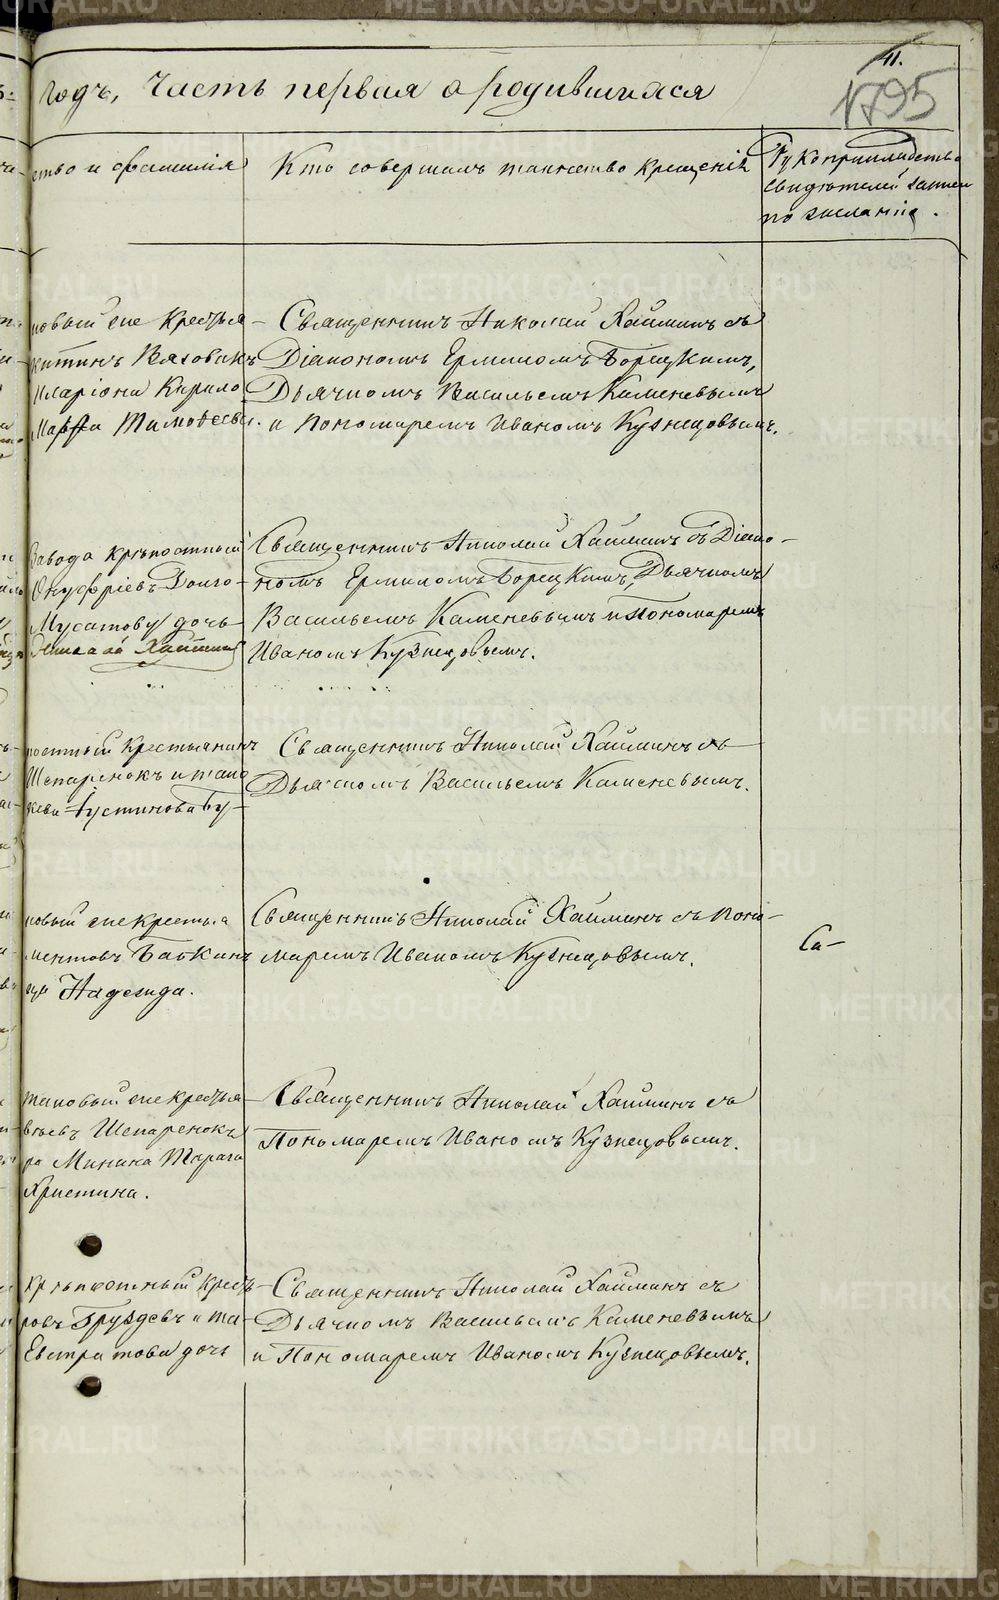 11.
1795
годъ, Часть первая о родившихся
ство и фамилія
Кто совершалъ таинство крещенія
Рукоприкладство
свидѣтелей записи
по желанію.
новый сие крестья-
китинъ Вяховикъ
Иларіона Кирило
Марѳа Тимоѳеева.
Священникъ Николай Хайминъ съ
Діакономъ Ермиломъ Борецкимъ,
Дьячкомъ Васильемъ Каменевымъ
и Пономаремъ Иваномъ Кузнецовымъ.
Завода крѣпостный
Онуфріевъ Долго-
Мусатову дочь
Священникъ Николай Хайминъ съ Діако-
номъ Ермиломъ Борецкимъ, Дьячкомъ
Васильемъ Каменевымъ и Пономаремъ
Иваномъ Кузнецовымъ.
постный крестьянинъ
Шепаренокъ и тако
Іустинова Бу-
Священникъ Николай Хайминъ съ
Дьячкомъ Васильемъ Каменевымъ.
новый сие крестья
ментовъ Бабкинъ
Надежда.
Священникъ Николай Хайминъ съ Поно-
маремъ Иваномъ Кузнецовымъ.
Са-
таковый сие крестья-
вѣевъ Шепаренокъ
ра Минина Тараса
Христина.
Священникъ Николай Хайминъ съ
Пономаремъ Иваномъ Кузнецовымъ.
крѣпостный крестъ-
ровъ Груздевъ и та-
Евстратова дочь
Священникъ Николай Хайминъ съ
Дьячкомъ Васильемъ Каменевымъ
и Пономаремъ Иваномъ Кузнецовымъ.
METRIKI.GASO-URAL.RU